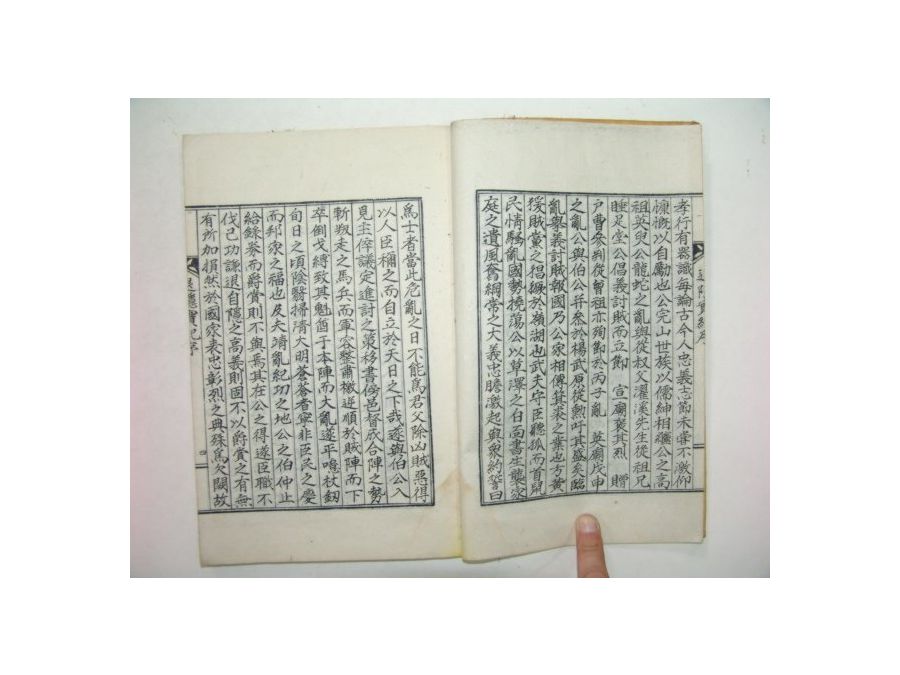 孝行有器識每論古今人忠義志節未嘗不激仰
慷慨以自勵也公完山世族以儒紳相繼公之高
祖英與公龍蛇之亂與從叔父濯溪先生從祖兄
睡足堂公倡義討賊而立節 宣廟褒其烈 贈
戶曹參判從曾祖亦殉節於丙子亂 英廟戊申
之亂公與伯公幷參於楊武原從勲吁其盛矣臨
亂擧義討賊報國乃公家相傳箕裘之業也方黃
猝賊黨之猖獗於嶺湖也武夫守臣聽狐而首鼠
民情騷亂國勢撓蕩公以草澤之白面書生襲家
庭之遺風奮綱常之大義忠膽激起與衆約誓曰
爲士者當此危亂之日不能爲君父除凶賊惡得
以人臣稱之而自立於天日之下哉遂與伯公入
見主倅議定進討之策移書傍邑督成合陣之勢
斬叛走之馬兵而軍容整肅檄逆順於賊陣而下
卒倒戈縛致其魁酋于本陣而大亂遂平噫杖釼
旬日之頃陰翳掃淸大明蒼蒼者寧非臣民之慶
而邦家之福也及夫靖亂紀功之地公之伯仲止
給錄券而爵賞則不與焉其在公之得遂臣職不
伐己功謙退自隱之高義則固不以爵賞之有無
有所加損然於國家表忠彰烈之典殊爲欠闕故
實記序
四